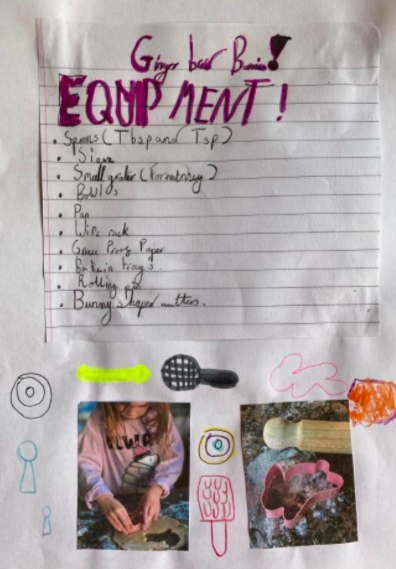 Ginger bear Bunnies!
EQUPMENT!
• Spoons (Tbsp and Tsp)
• Sieve
• Small grater (for nutmeg)
• Bowls
• Pan
• Wire rack
• Grease Proof Paper
• trays.
• Rolling pin
• Bunny shape cutters.